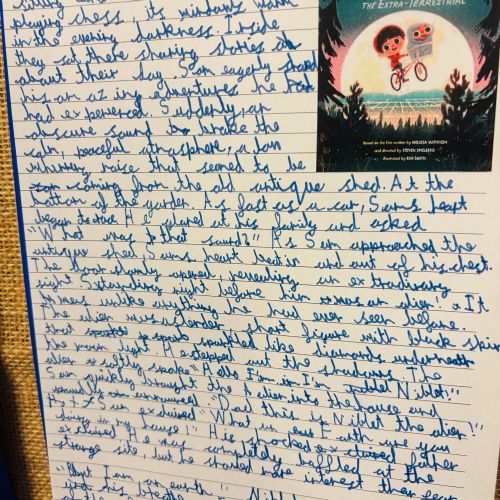 playing chess, its windows warm
in the evening darkness. Inside
they sat there sharing stories
about their day. Sam eagerly shared
his amazing adventures he
had experienced. Suddenly, an
obscure sound broke the
calm, peaceful atmosphere, a
noise that seemed to be
coming from the old antique shed. At the
bottom of the garden. As fast as a car, Sams heart
began to race. He glared at his family and asked
"What was that sound?" As Sam approached the
antique shed, Sams heart beat in and out of his chest.
The door slowly opened, revealing an
sight. Standing right before him was an alien. It
was unlike anything he had ever seen before.
The alien was a slender, short figure with black skin
that sparkled like diamonds underneath
the moon light. He stepped out the shadows. The
alien softly spoke "Hello I'm Niblet!"
Sam quickly brought the alien into the house and
announced "Dad this is Niblet the alien!"
"What on earth are you
doing in my house!" His shocked father
exclaimed. He was completely baffled at the
strange site, but he started more interest than
"Am I on earth" Niblet
his breath
THE EXTRA-TERRESTRIAL
Based on the film written by MELISSA MATHISON
and directed by STEVEN SPIELBERG
Illustrated by KIM SMITH